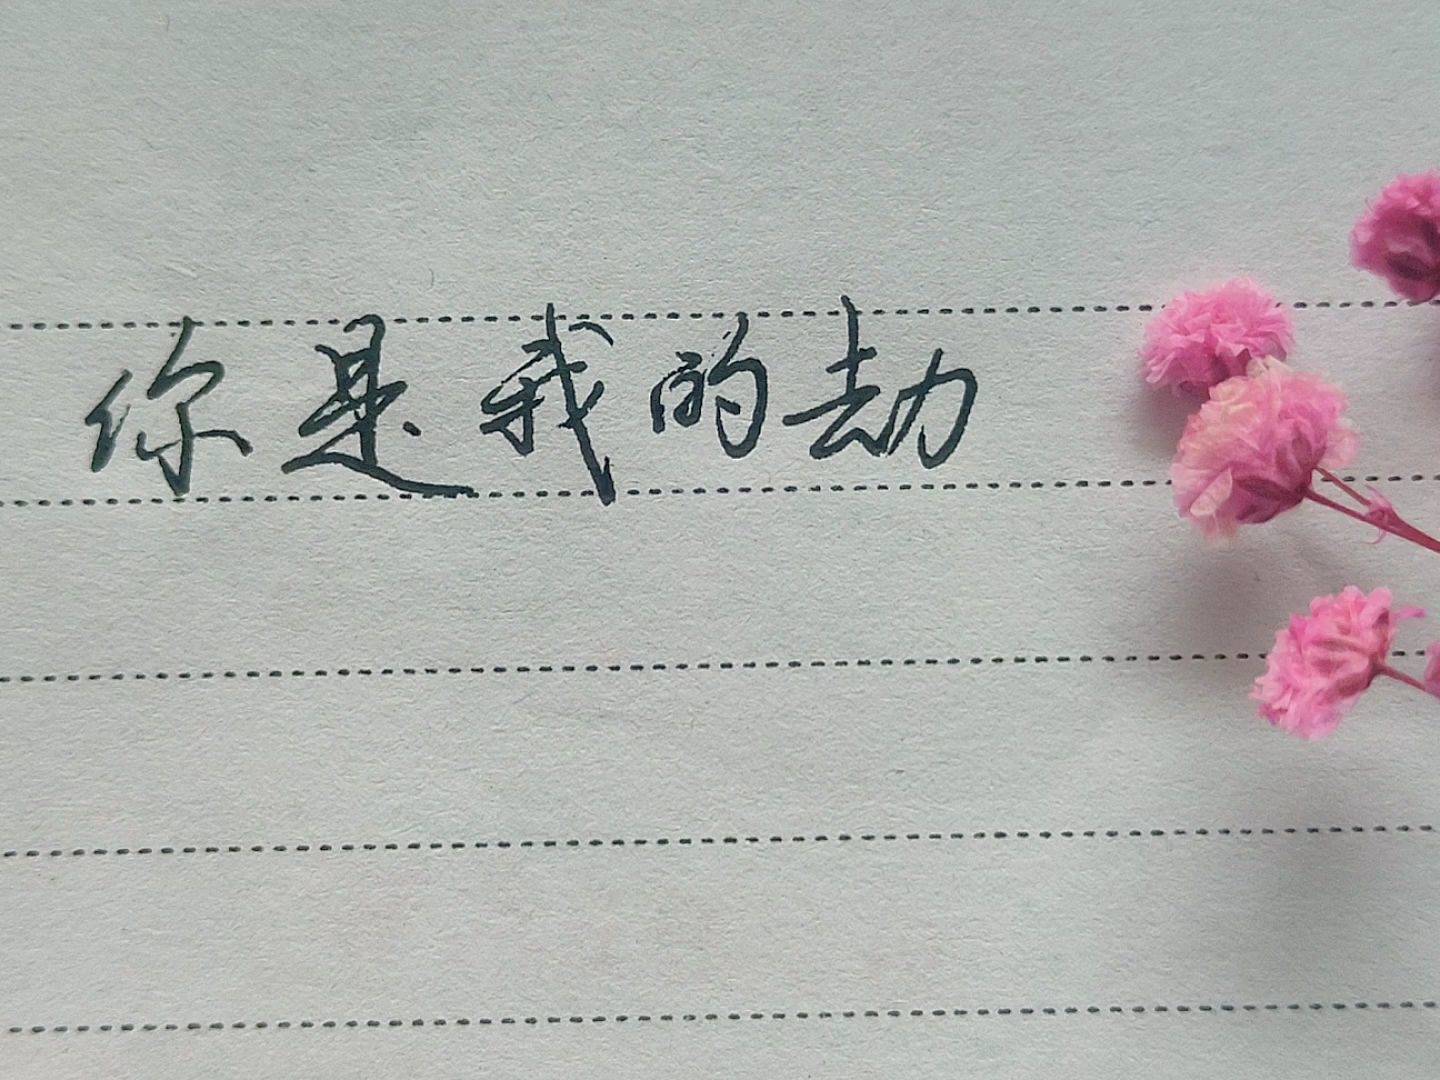 你是我的劫